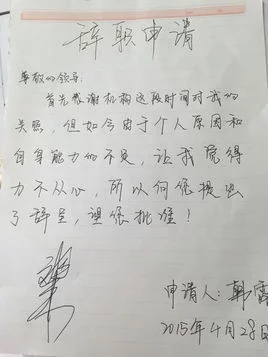 辞职申请
尊敬的领导：
首先感谢机构这段时间对我的
关照，但如今由于个人原因和
自身能力的不足，让我觉得
力不从心，所以向您提出
了辞呈，望您批准！
申请人：韩雪
2015年4月28日